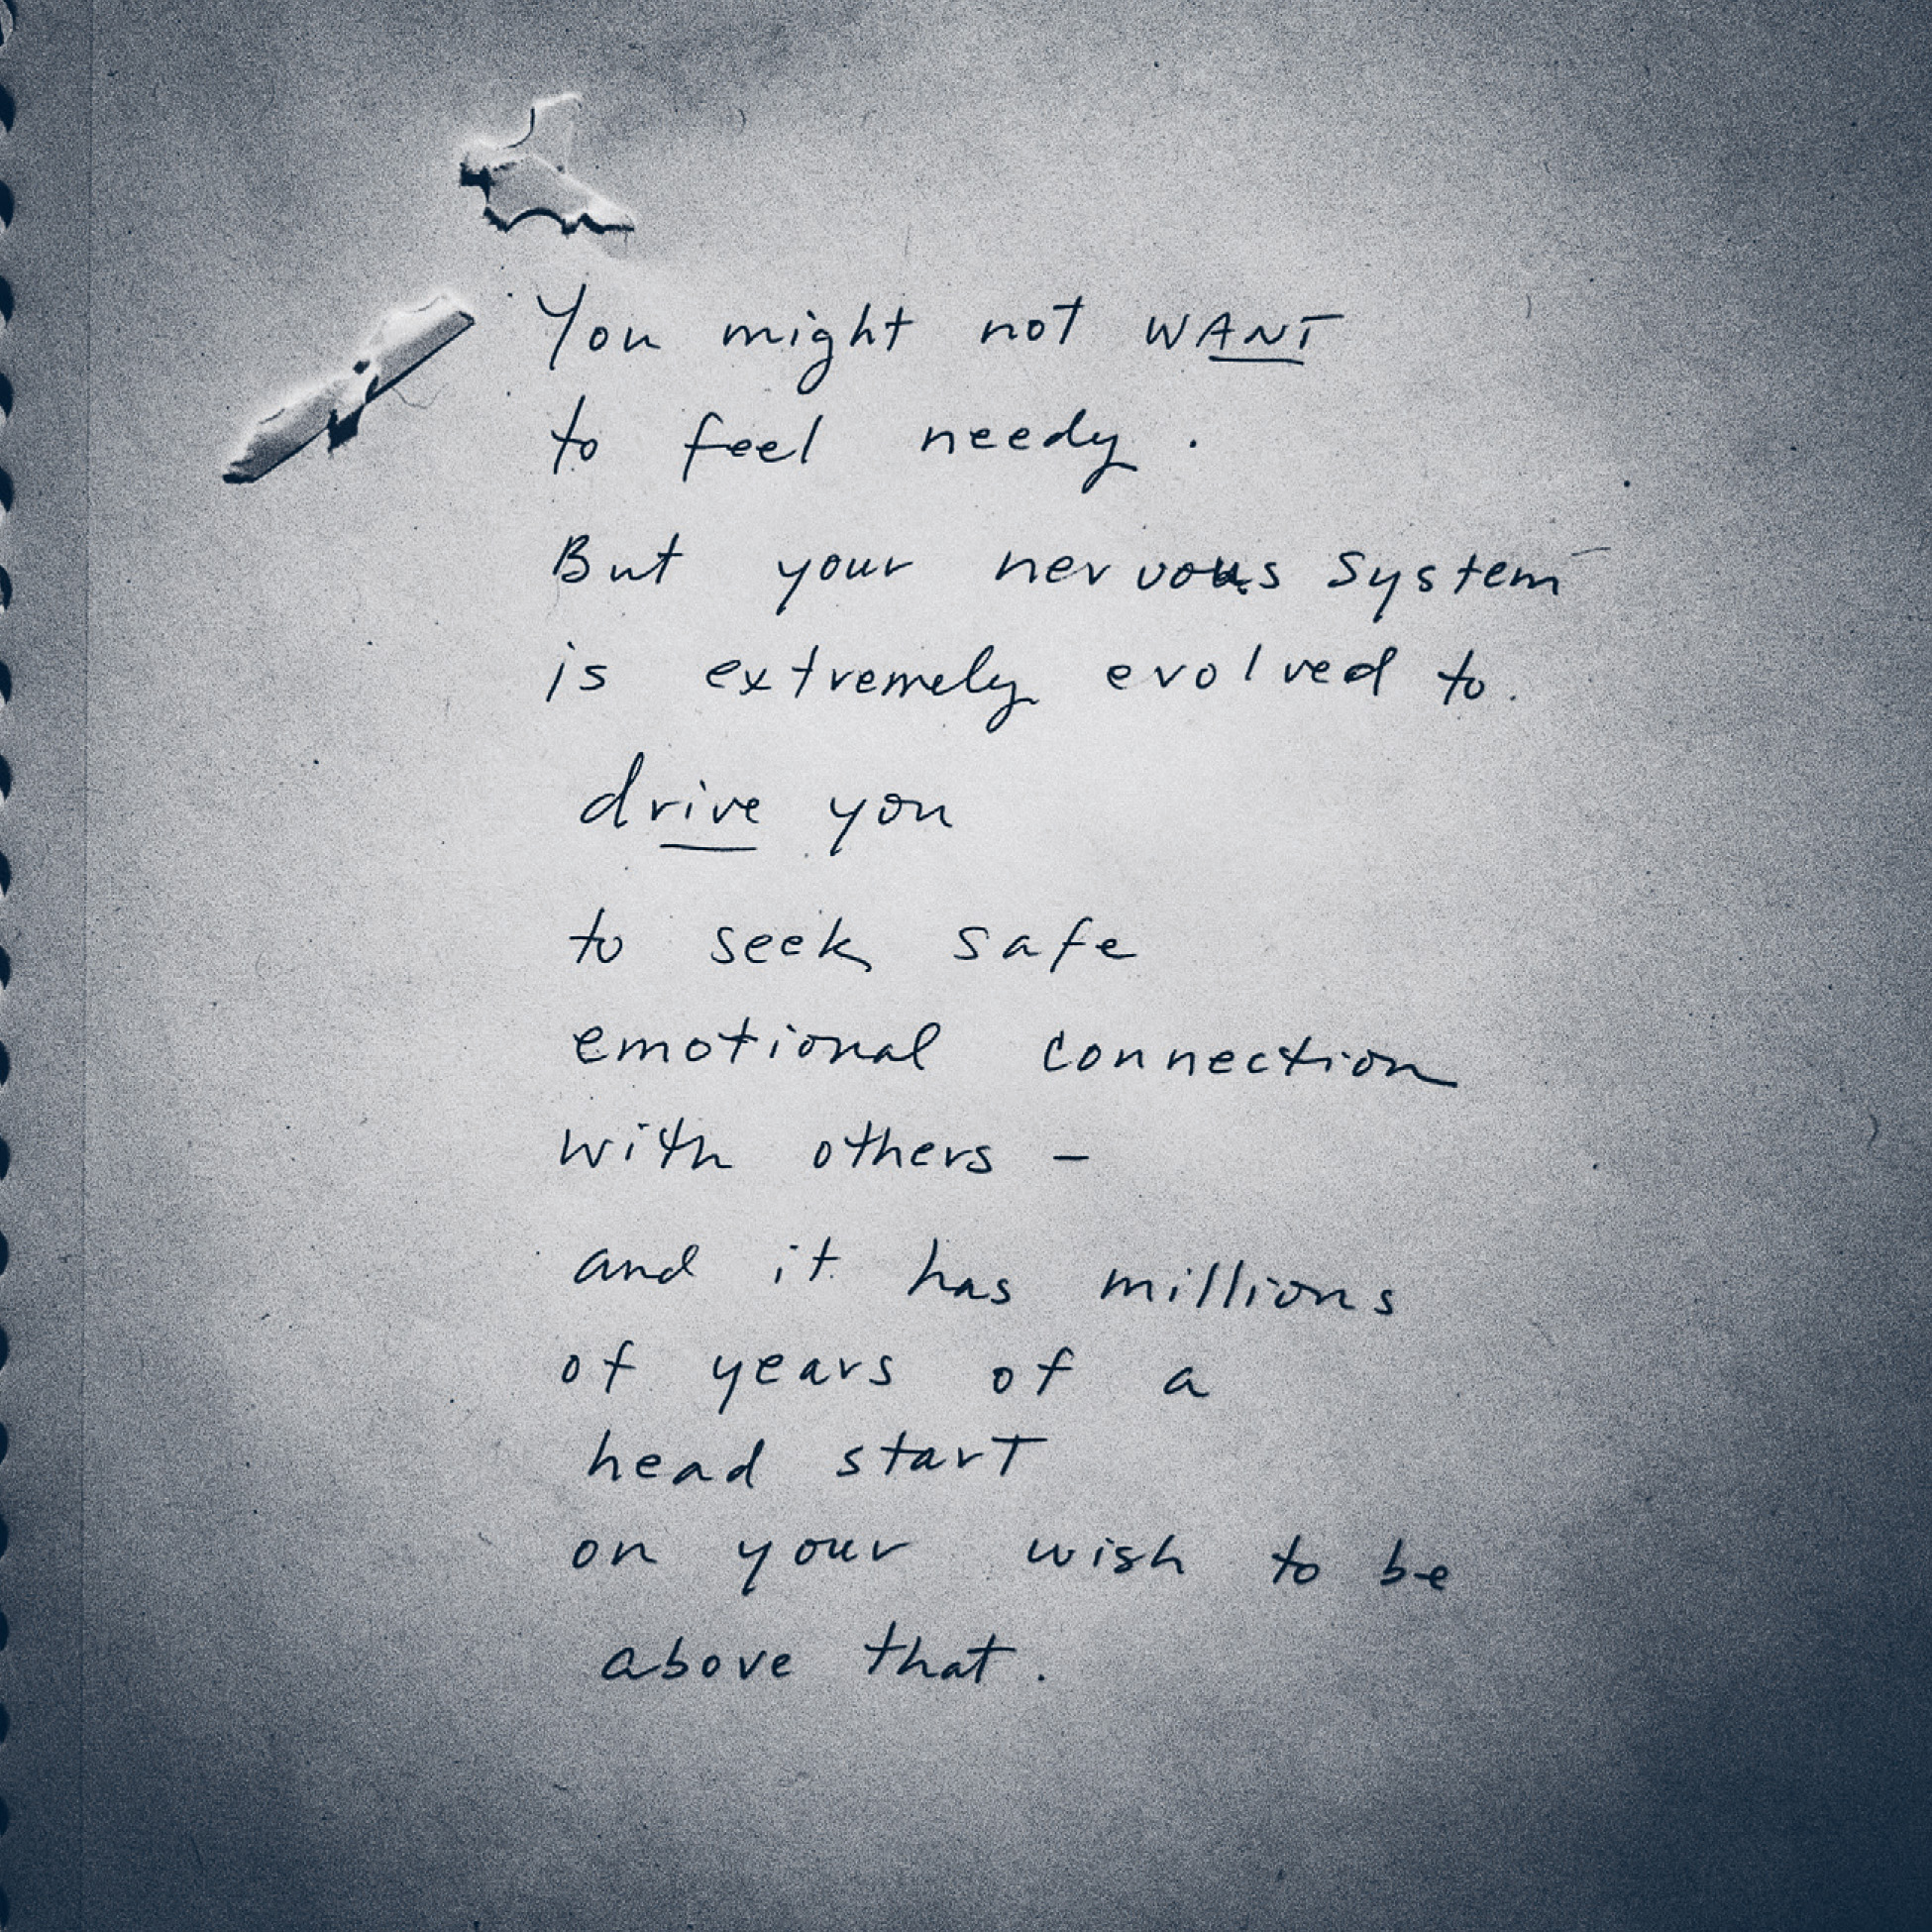 You might not WANT
to feel needy.
But your nervous system
is extremely evolved to
drive you
to seek safe
emotional connection
with others –
and it has millions
of years of a
head start
on your wish to be
above that.